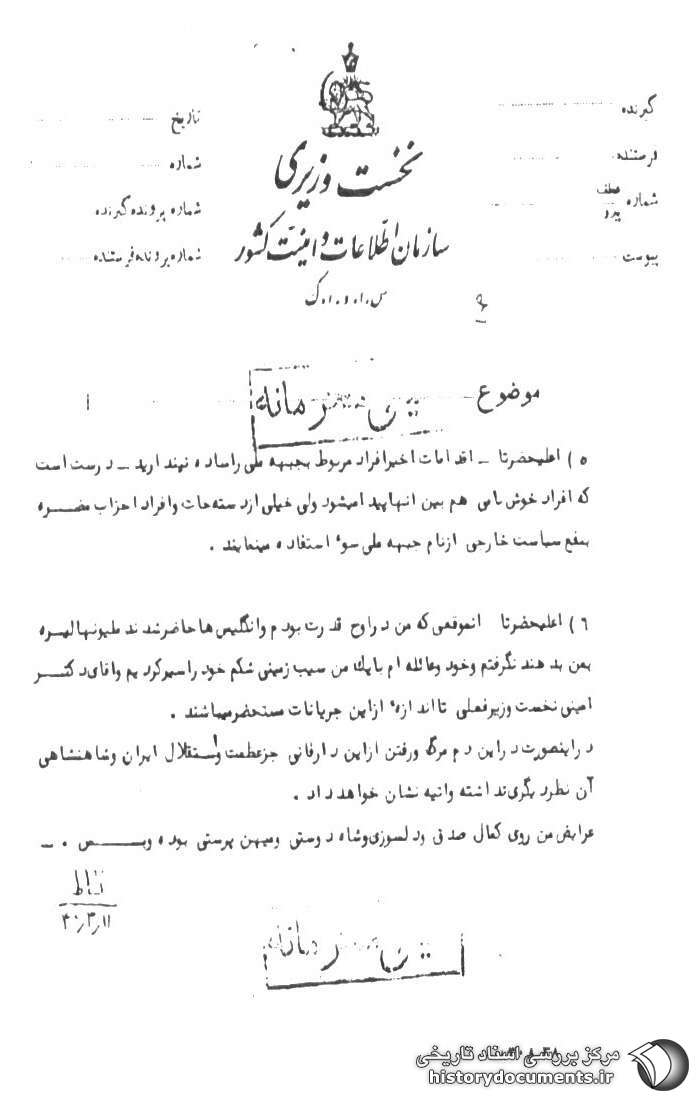 نخست وزیری
سازمان اطلاعات و امنیت کشور
س.ا.و.ا.ک
گیرنده
فرستنده
شماره عطف پیرو
پیوست
تاریخ
شماره
شماره پرونده گیرنده
شماره پرونده فرستنده
موضوع
۵ ) اعلیحضرتا ــ اقدامات اخیر افراد مربوط بجبهه ملی را ساده نپندارید ــ درست است
که افراد خوش نامی هم بین آنها پیدا میشود ولی خیلی از دستجات و افراد احزاب مضــره
بنفع سیاست خارجی از نام جبهه ملی سوء استفاده مینمایند .
۶ ) اعلیحضرتا آنموقعی که من در اوج قدرت بودم و انگلیس ها حاضر شدند ملیونها لیره
بمن بدهند نگرفتم و خود و عائله ام با یک من سیب زمینی شکم خود را سیر کردیم و آقای دکتــر
امینی نخست وزیر فعلی تا اندازهٔ از این جریانات مستحضر میباشند .
در اینصورت در این دم مرگ و رفتن از این دار فانی جز عظمت و استقلال ایران و شاهنشاهی
آن نظر دیگری نداشته و آتیه نشان خواهد داد .
عرایض من روی کمال صدق و دلسوزی و شاه دوستی و میهن پرستی بوده و بــــس . ــ
۴۰/۳/۱۱
مرکز بررسی اسناد تاریخی
historydocuments.ir